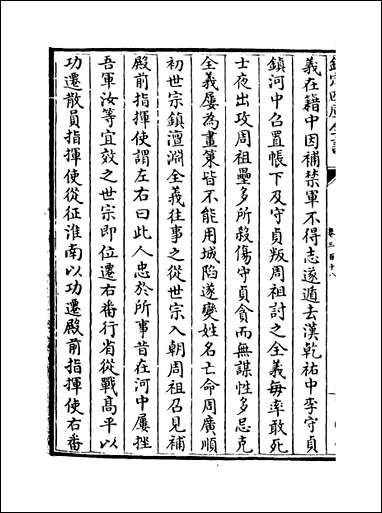 欽定四庫全書
卷三百十八
義在籍中因補禁軍不得志遂遁去漢乾祐中李守貞
鎮河中召置帳下及守貞叛周祖討之全義每率敢死
士夜出攻周祖壘多所殺傷守貞貪而無謀性多忌克
全義屢為畫策皆不能用城陷遂變姓名亡命周廣順
初世宗鎮澶淵全義往事之從世宗入朝周祖召見補
殿前指揮使謂左右曰此人忠於所事昔在河中屢挫
吾軍汝等宜效之世宗即位遷右番行省從戰高平以
功遷散員指揮使從征淮南以功遷殿前指揮使右番